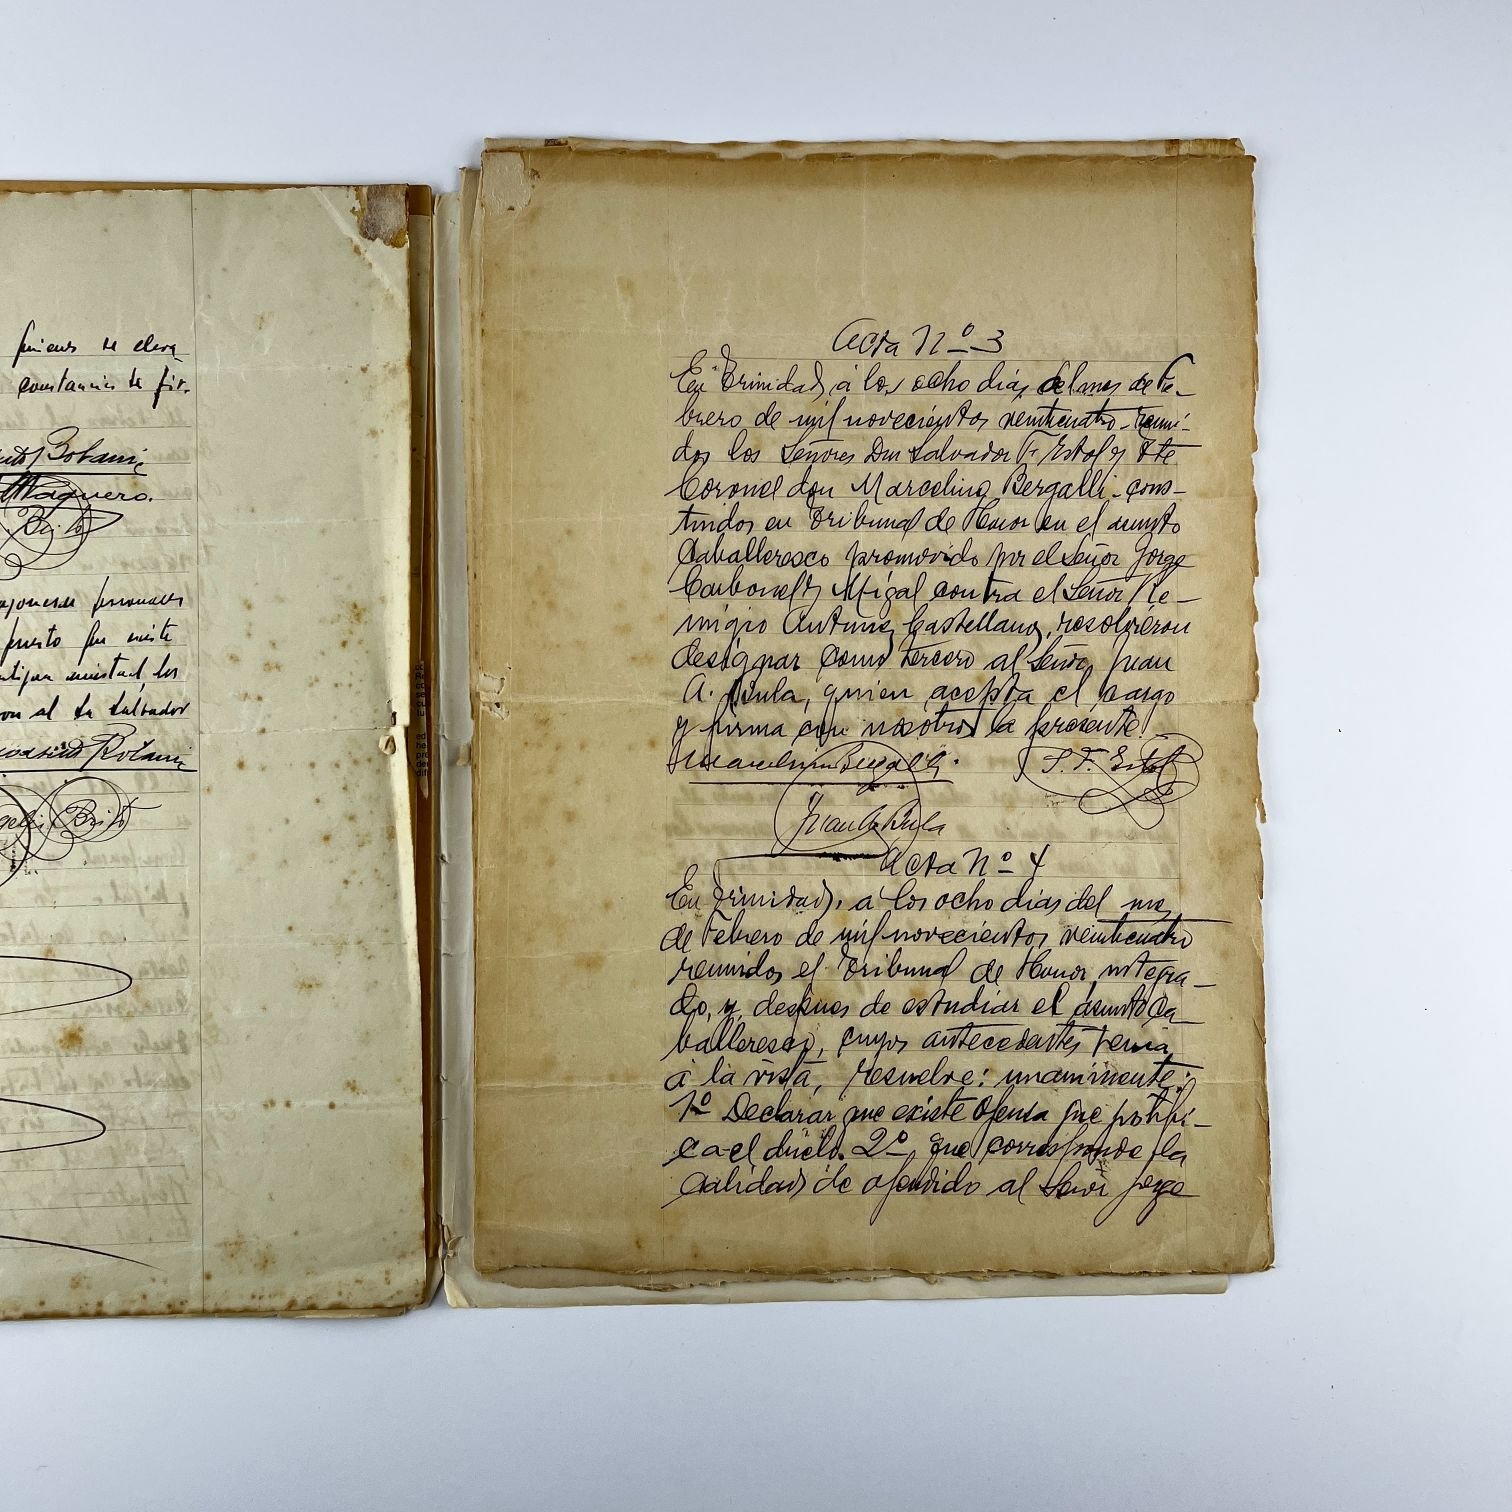 quienes se eleva
constancia se fir-
Bobani
Vaquero.
Brito
personales
puesto que existe
antigua amistad, los
con el Sr Salvador
Brito
Acta Nº 3
En Trinidad, á los ocho dias del mes de Fe-
brero de mil novecientos veinticuatro - reuni-
dos los Señores Don Salvador F. Estol y Tte
Coronel don Marcelino Bergalli - cons-
tuidos en Tribunal de Honor en el asunto
Caballeresco promovido por el Señor Jorge
Carbonell y Migal contra el Señor Re-
migio Antunez Castellanos, resolvieron
designar como tercero al Señor Juan
A. Pula, quien acepta el cargo
y firma con nosotros la presente.
Marcelino Bergalli.
S. F. Estol
Juan A Pula
Acta Nº 4
En Trinidad, a los ocho dias del mes
de Febrero de mil novecientos veinticuatro
reunidos el Tribunal de Honor integra-
do, y, despues de estudiar el asunto Ca-
balleresco, cuyos antecedentes tenia
á la vista, resuelve: unanimente:
1º Declarar que existe ofensa que justifi-
ca el duelo. 2º que corresponde la
calidad de ofendido al Señor Jorge